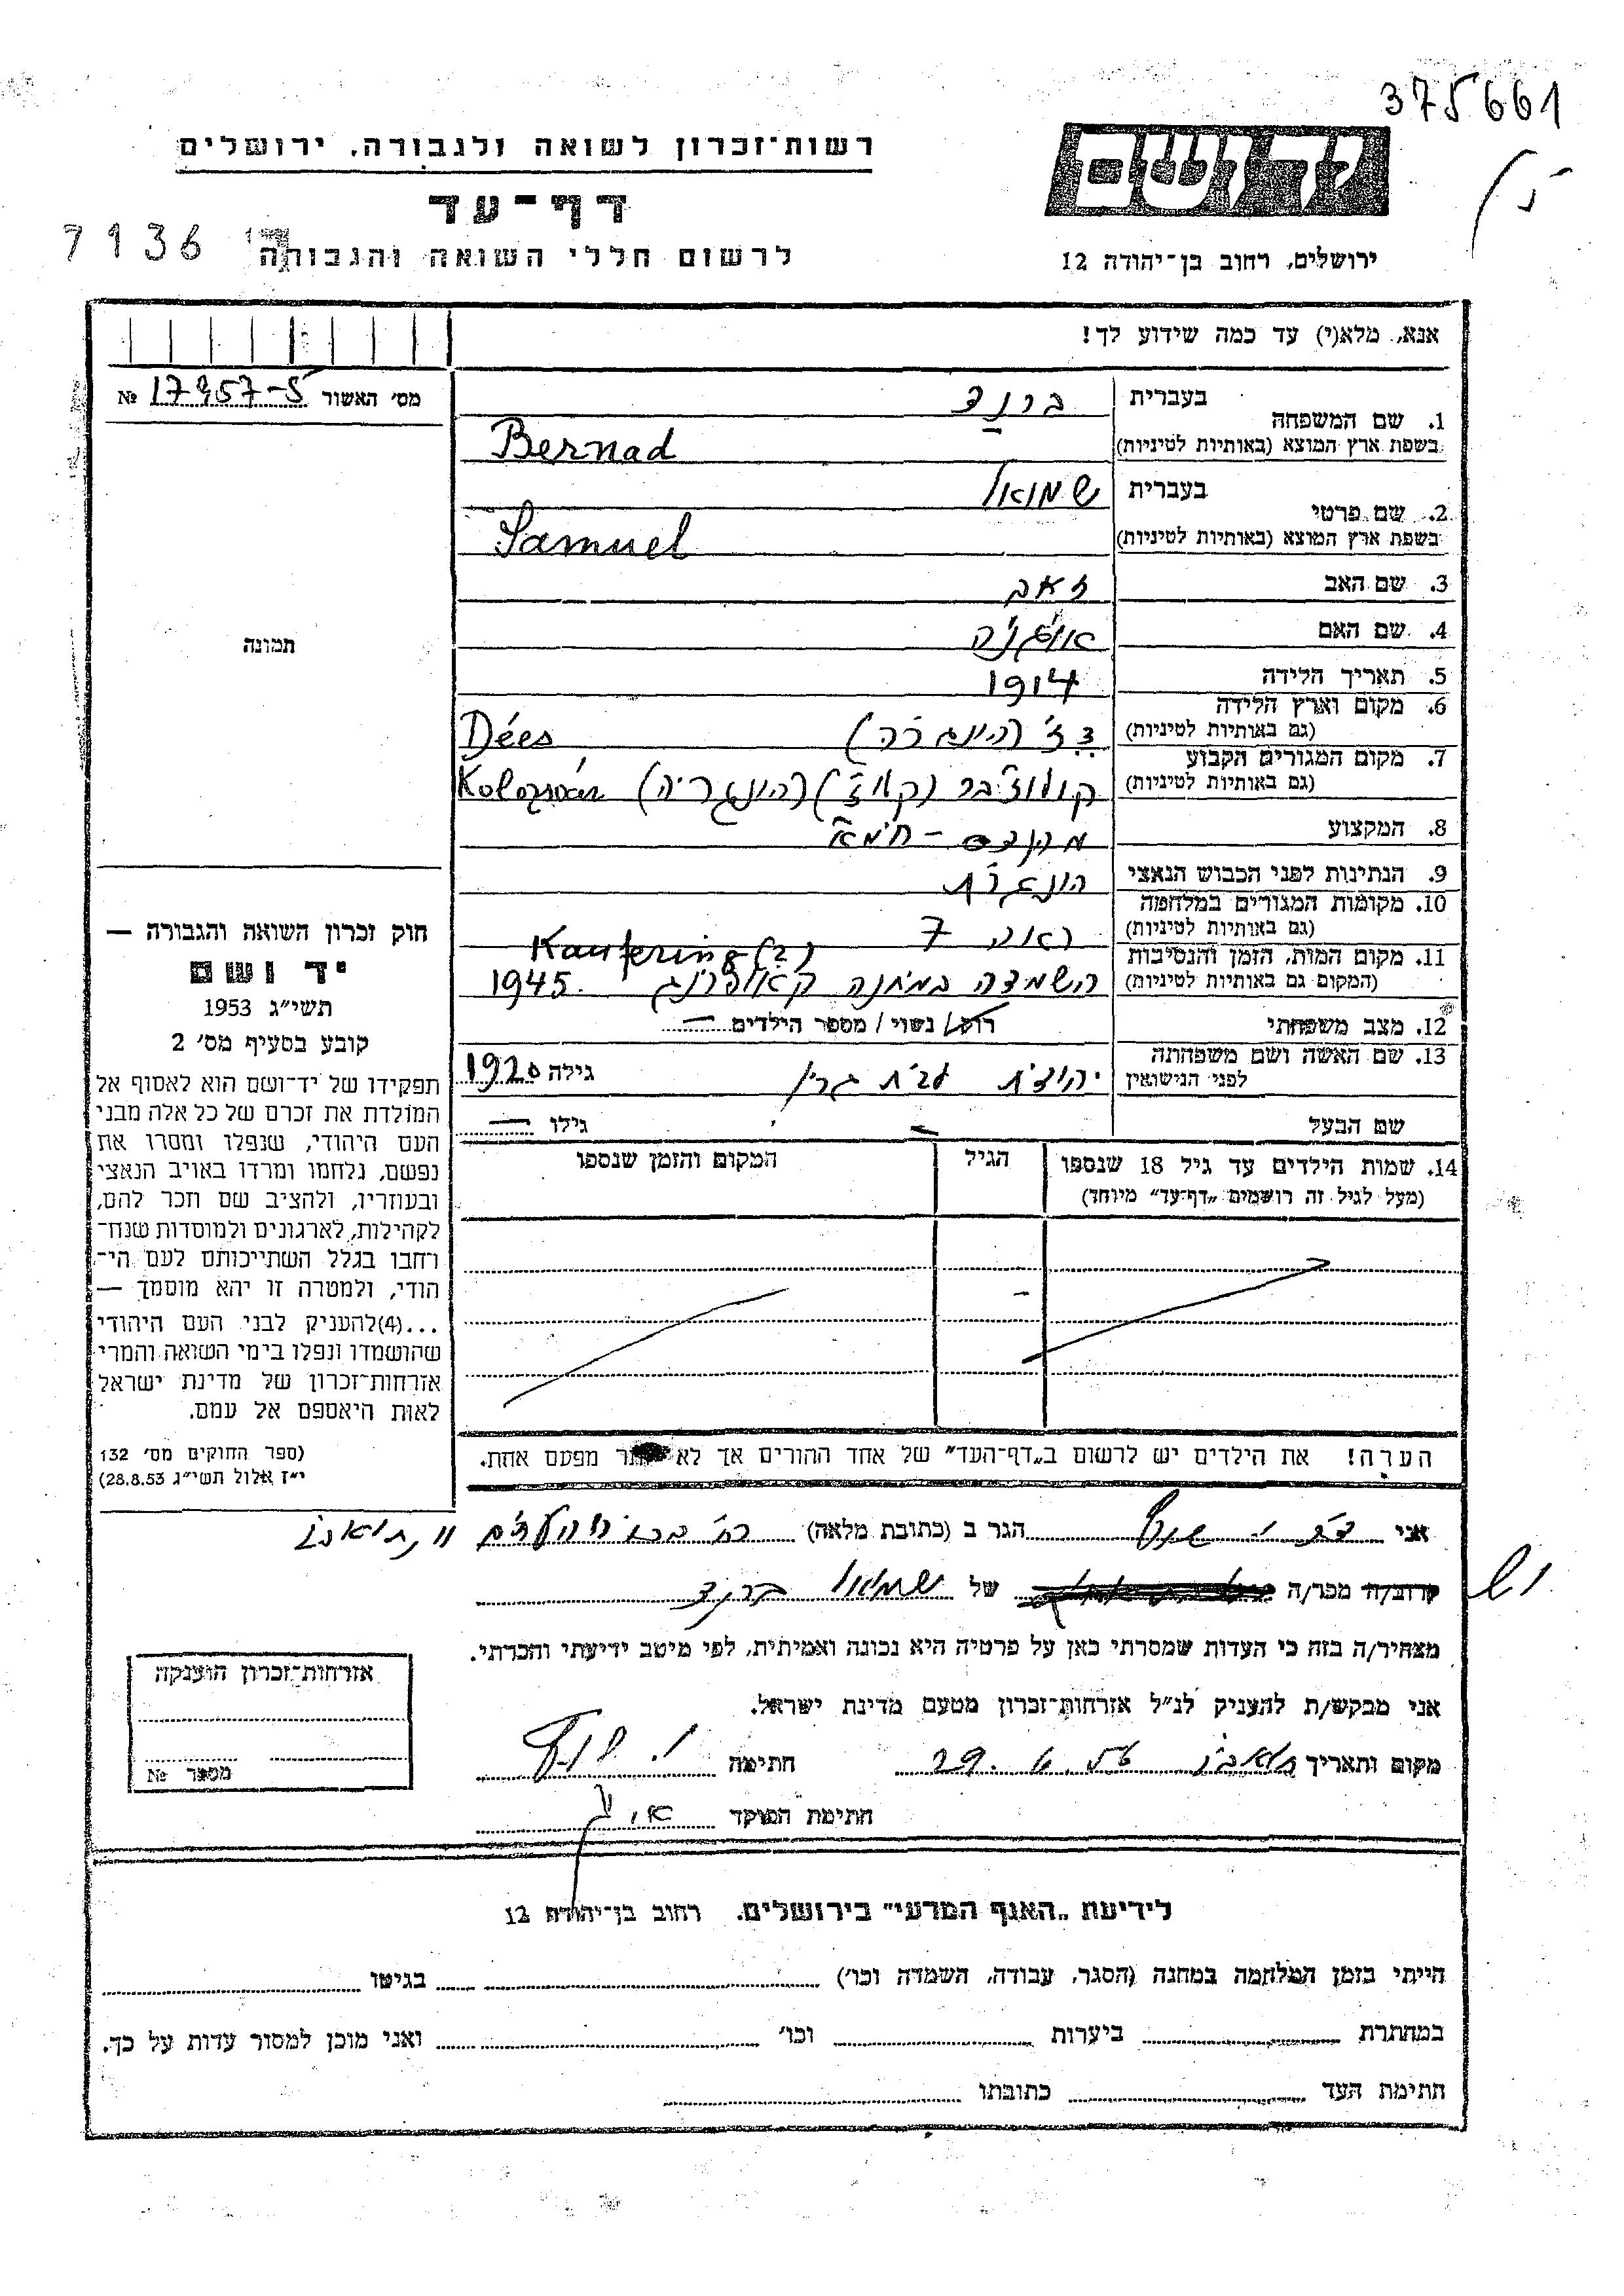 375661
יד ושם
רשות־זכרון לשואה ולגבורה, ירושלים
דף־עד
7136
לרשום חללי השואה והגבורה
ירושלים, רחוב בן־יהודה 12
אנא, מלא(י) עד כמה שידוע לך!
מס' האשור 17957-5 №
1. שם המשפחה
בעברית ברנד
בשפת ארץ המוצא (באותיות לטיניות) Bernad
2. שם פרטי
בעברית שמואל
בשפת ארץ המוצא (באותיות לטיניות) Samuel
3. שם האב זאב
4. שם האם אוג'ניה
5. תאריך הלידה 1914
6. מקום וארץ הלידה
(גם באותיות לטיניות) דז' (הונגריה) Dées
7. מקום המגורים הקבוע
(גם באותיות לטיניות) קולוז'בר (קלוז') (הונגריה) Kolozsvár
8. המקצוע מהנדס - חימאי
9. הנתינות לפני הכבוש הנאצי הונגרית
10. מקומות המגורים במלחמה
(גם באותיות לטיניות) ראה 7
11. מקום המות, הזמן והנסיבות
(המקום גם באותיות לטיניות) Kaufering (?)
השמדה במחנה קאופרינג 1945.
12. מצב משפחתי רוק/ נשוי / מספר הילדים —
13. שם האשה ושם משפחתה
לפני הנישואין יהודית לבית גרין גילה 1920
שם הבעל — גילו —
תמונה
חוק זכרון השואה והגבורה —
יד ושם
תשי״ג 1953
קובע בסעיף מס' 2
תפקידו של יד־ושם הוא לאסוף אל
המולדת את זכרם של כל אלה מבני
העם היהודי, שנפלו ומסרו את
נפשם, נלחמו ומרדו באויב הנאצי
ובעוזריו, ולהציב שם וזכר להם,
לקהילות, לארגונים ולמוסדות שנח־
רחבו בגלל השתייכותם לעם הי־
הודי, ולמטרה זו יהא מוסמך —
...(4)להעניק לבני העם היהודי
שהושמדו ונפלו בימי השואה והמרי
אזרחות־זכרון של מדינת ישראל
לאות היאספם אל עמם.
(ספר החוקים מס' 132
י״ז אלול תשי״ג 28.8.53)
14. שמות הילדים עד גיל 18 שנספו
(מעל לגיל זה רושמים „דף־עד״ מיוחד)
הגיל
המקום והזמן שנספו
הערה! את הילדים יש לרשום ב„דף־העד״ של אחד ההורים אך לא יותר מפעם אחת.
אני הגר ב (כתובת מלאה)
קרוב/ה מכר/ה של שמואל ברנד
מצהיר/ה בזה כי העדות שמסרתי כאן על פרטיה היא נכונה ואמיתית, לפי מיטב ידיעתי והכרתי.
אני מבקש/ת להעניק לנ״ל אזרחות־זכרון מטעם מדינת ישראל.
מקום ותאריך חתימה
חתימת הפוקד
אזרחות־זכרון הוענקה
מספר №
לידיעת „האגף המדעי״ בירושלים. רחוב בן־יהודה 12
הייתי בזמן המלחמה במחנה (הסגר, עבודה, השמדה וכו') בגיטו
במחתרת ביערות וכו' ואני מוכן למסור עדות על כך.
חתימת העד כתובתו